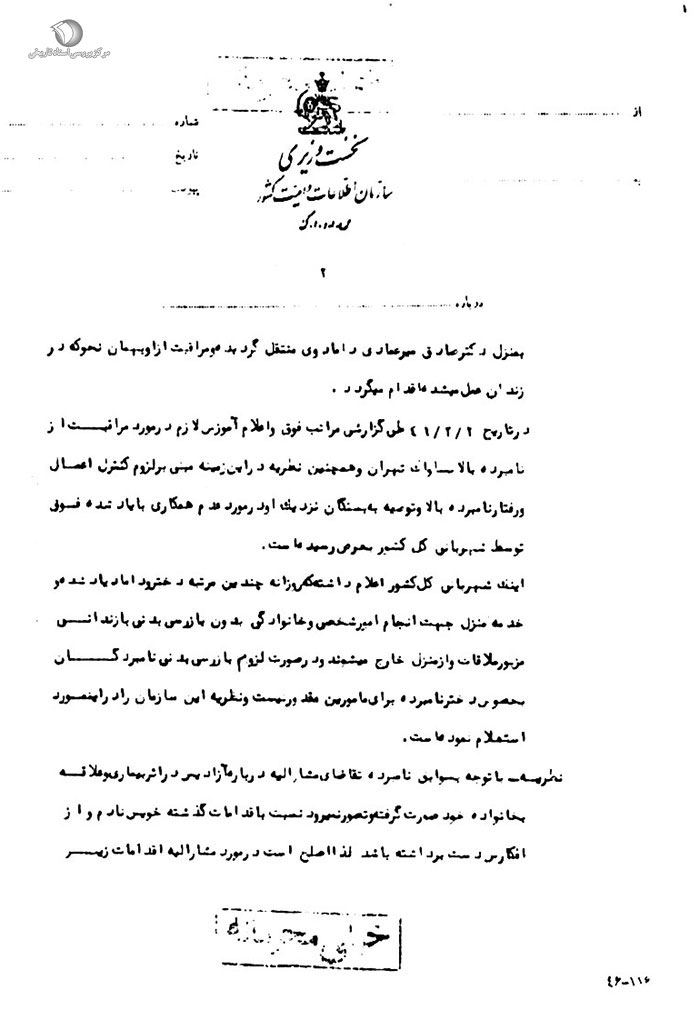 ۱
مرکز بررسی اسناد تاریخی
از
شماره
نخست وزیری
تاریخ
به
سازمان اطلاعات و امنیت کشور
پیوست
س.ا.و.ا.ک
۲
درباره
بمنزل دکتر صادق میرعمادی داماد وی منتقل گردیده و مراقبت از او بهمان نحو که در
زندان عمل میشده اقدام میگردد .
در تاریخ ۴۱/۲/۲ طی گزارشی مراتب فوق و اعلام آموزش لازم در مورد مراقبت از
نامبرده بالا بساواک تهران و همچنین نظریه در این زمینه مبنی بر لزوم کنترل اعمال
و رفتار نامبرده بالا و توصیه به بستگان نزدیک او در مورد عدم همکاری با یاد شده فوق
توسط شهربانی کل کشور بعرض رسیده است.
اینک شهربانی کل کشور اعلام داشته که روزانه چندین مرتبه دختر و داماد یاد شده و
خدمه منزل جهت انجام امور شخصی و خانوادگی بدون بازرسی بدنی با زندانی
مزبور ملاقات و از منزل خارج میشوند و در صورت لزوم بازرسی بدنی نامبردگان
بخصوص دختر نامبرده برای مامورین مقدور نیست و نظریه این سازمان را در اینمورد
استعلام نموده است.
نظریه - با توجه بسوابق نامبرده تقاضای مشارالیه درباره آزادیش در اثر بیماری و علاقه
بخانواده خود صورت گرفته و تصور نمیرود نسبت باقدامات گذشته خویش نادم و از
افکارش دست برداشته باشد لذا اصلح است در مورد مشارالیه اقدامات زیر
خیلی محرمانه
۴۶-۱۱۶